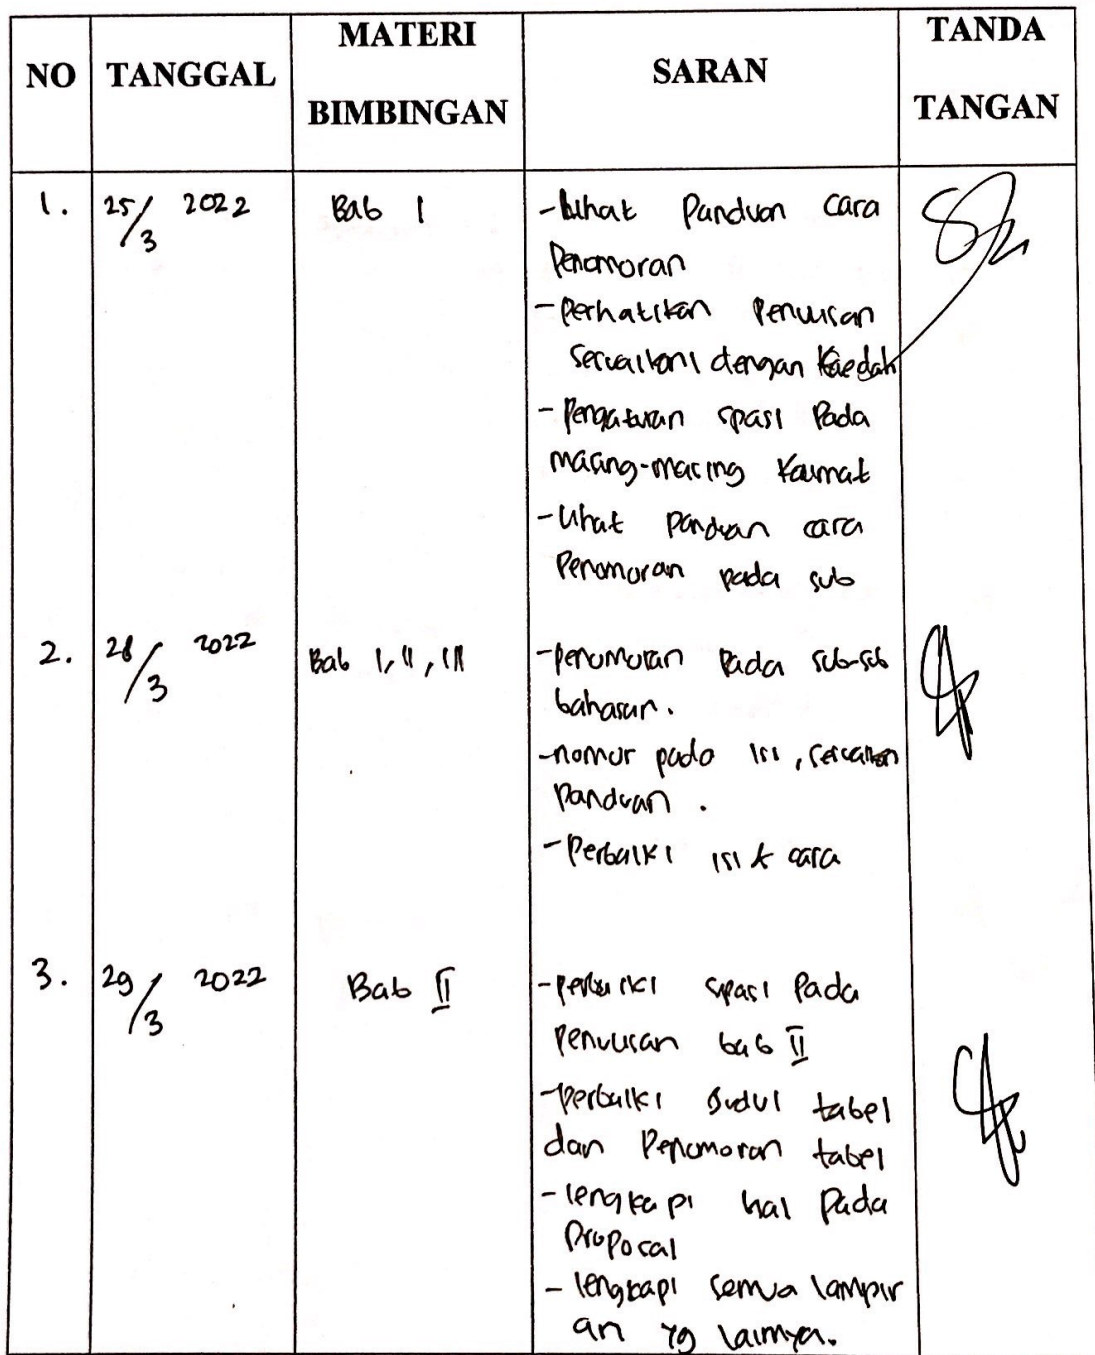 NO TANGGAL MATERI BIMBINGAN SARAN TANDA TANGAN
1. 25/3 2022 Bab I -Lihat Panduan cara
Penomoran
-perhatikan Penulisan
sesuaikan dengan Kaedah
-pengaturan spasi Pada
masing-masing Kalimat
-Lihat panduan cara
Penomoran pada sub
2. 28/3 2022 Bab I, II, III -penomoran Pada sub-sub
bahasan.
-nomor pada isi, sesuaikan
Panduan.
-Perbaiki isi & cara
3. 29/3 2022 Bab II -perbaiki spasi Pada
Penulisan bab II
-perbaiki Judul tabel
dan Penomoran tabel
-lengkapi hal Pada
Proposal
- lengkapi semua lampir
an yg lainnya.